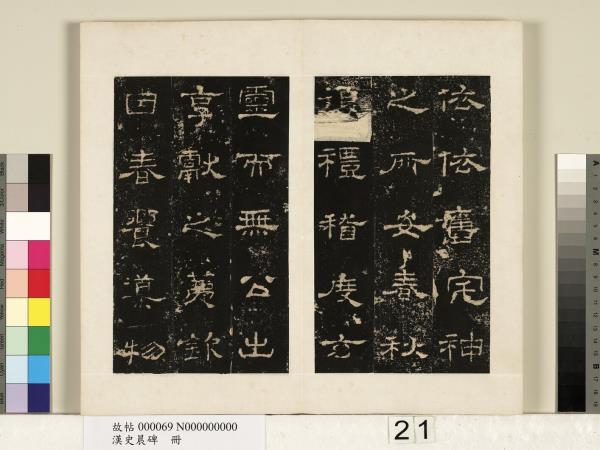 依依舊宅神
之所安春秋
復禮稽度玄
靈而無公出
享獻之薦欽
因春饗導物
故帖 000069 N000000000
漢史晨碑 冊
21